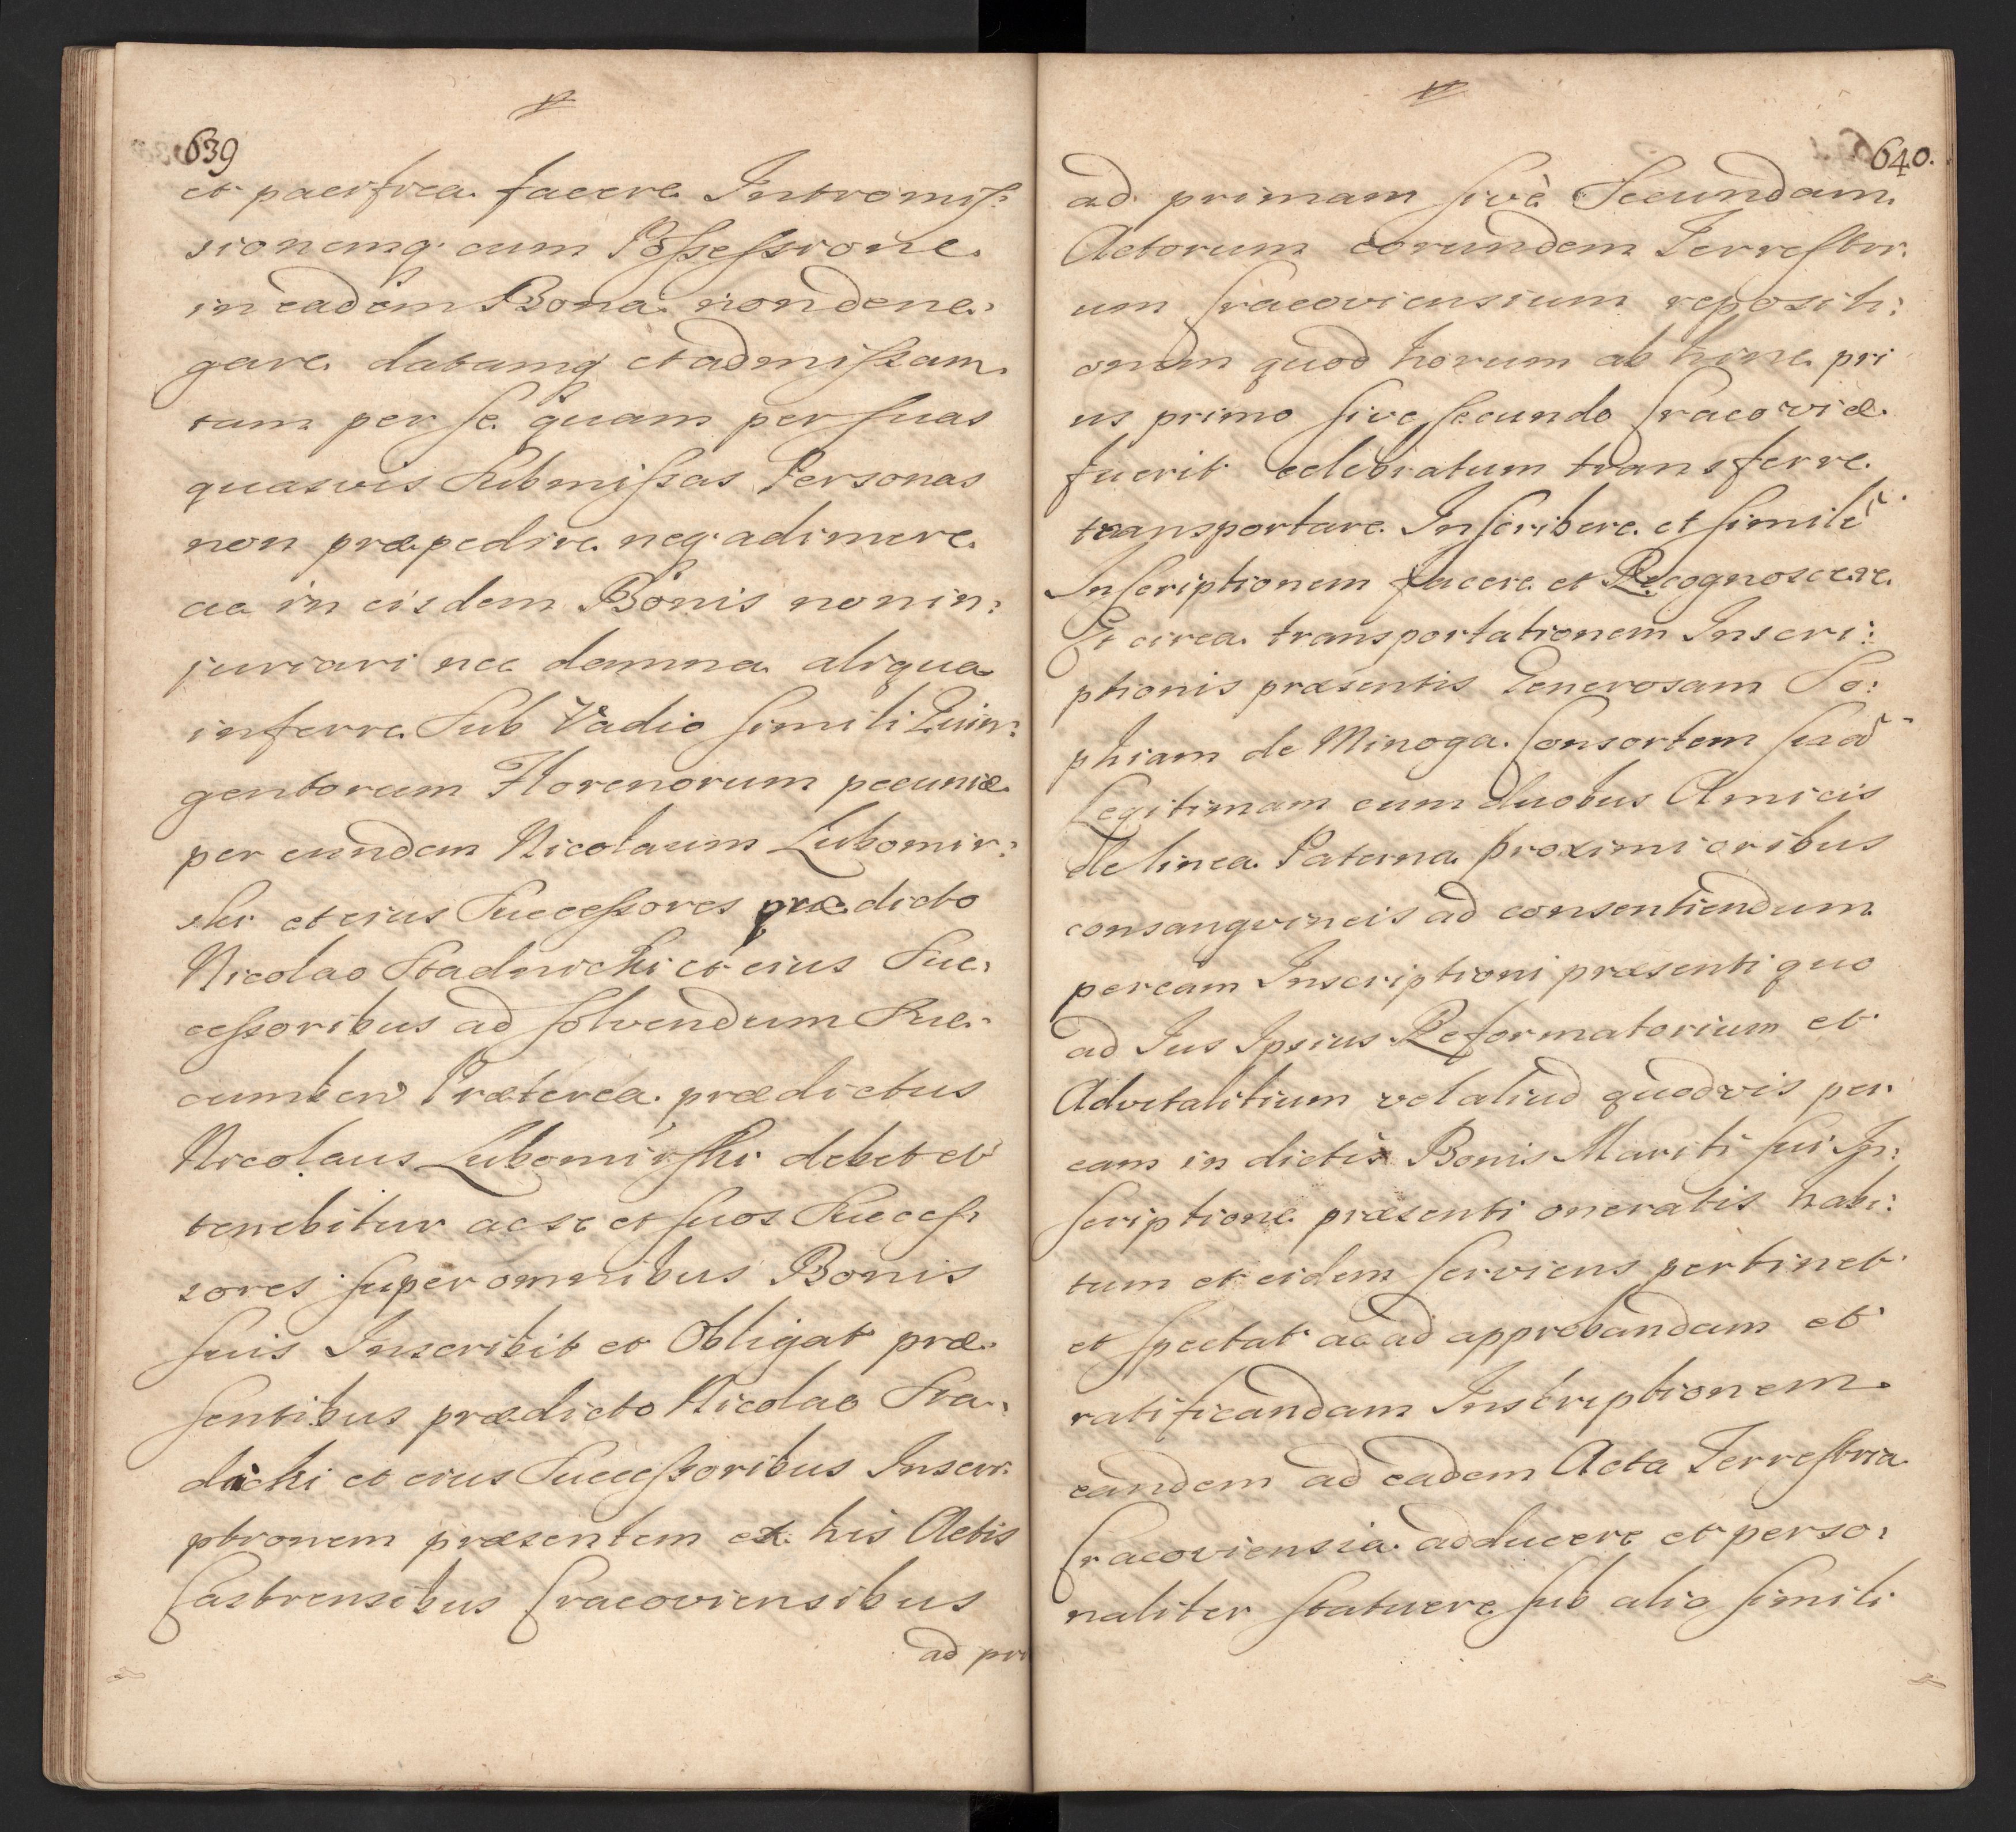 639
et pacifica facere Intromis:
sionemq cum Possessione
in eadem Bona non dene:
gare datamq et admissam
tam per se quam per suas
quasvis Submissas Personas
non præpedire neq adimere
ac in eisdem Bonis non in:
juriari nec damna aliqua
inferre Sub Vadio simili Quin:
gentorum Florenorum pecuniæ
per eundem Nicolaum Lubomir:
ski et eius Successores prædicto
Nicolao Stadnicki et eius Suc:
cessoribus ad solvendum Suc:
cumben Præterea prædictus
Nicolaus Lubomirski debet et
tenebitur ac se et suos Succes:
sores super omnibus Bonis
suis Inscribit et Obligat præ:
sentibus prædicto Nicolao Sta:
dnicki et eius Successoribus Inscri:
ptionem præsentem ex his Actis
Castrensibus Cracoviensibus
ad pri
640.
ad primam sivè Secundam
Actorum eorundem Terrestri:
um Cracoviensium repositi:
onem quod horum ab hinc pri
us primo sive secundo Cracoviæ
fuerit celebratum transferre
transportare Inscribere et simile
Inscriptionem facere et Recognoscere
Et circa transportationem Inscri:
ptionis præsentis Generosam So:
phiam de Minoga Consortem suã
Legitimam cum duobus Amicis
de linea Paterna proximioribus
consangvineis ad consentiendum
per eam Inscriptioni præsenti quo
ad Jus Ipsius Reformatorium et
Advitalitium vel aliud quodvis per
eam in dictis Bonis Mariti sui In:
scriptione præsenti oneratis habi:
tum et eidem serviens pertinet
et spectat ac ad approbandam et
ratificandam Inscriptionem
eandem ad eadem Acta Terrestria
Cracoviensia adducere et perso:
naliter statuere sub alio simili